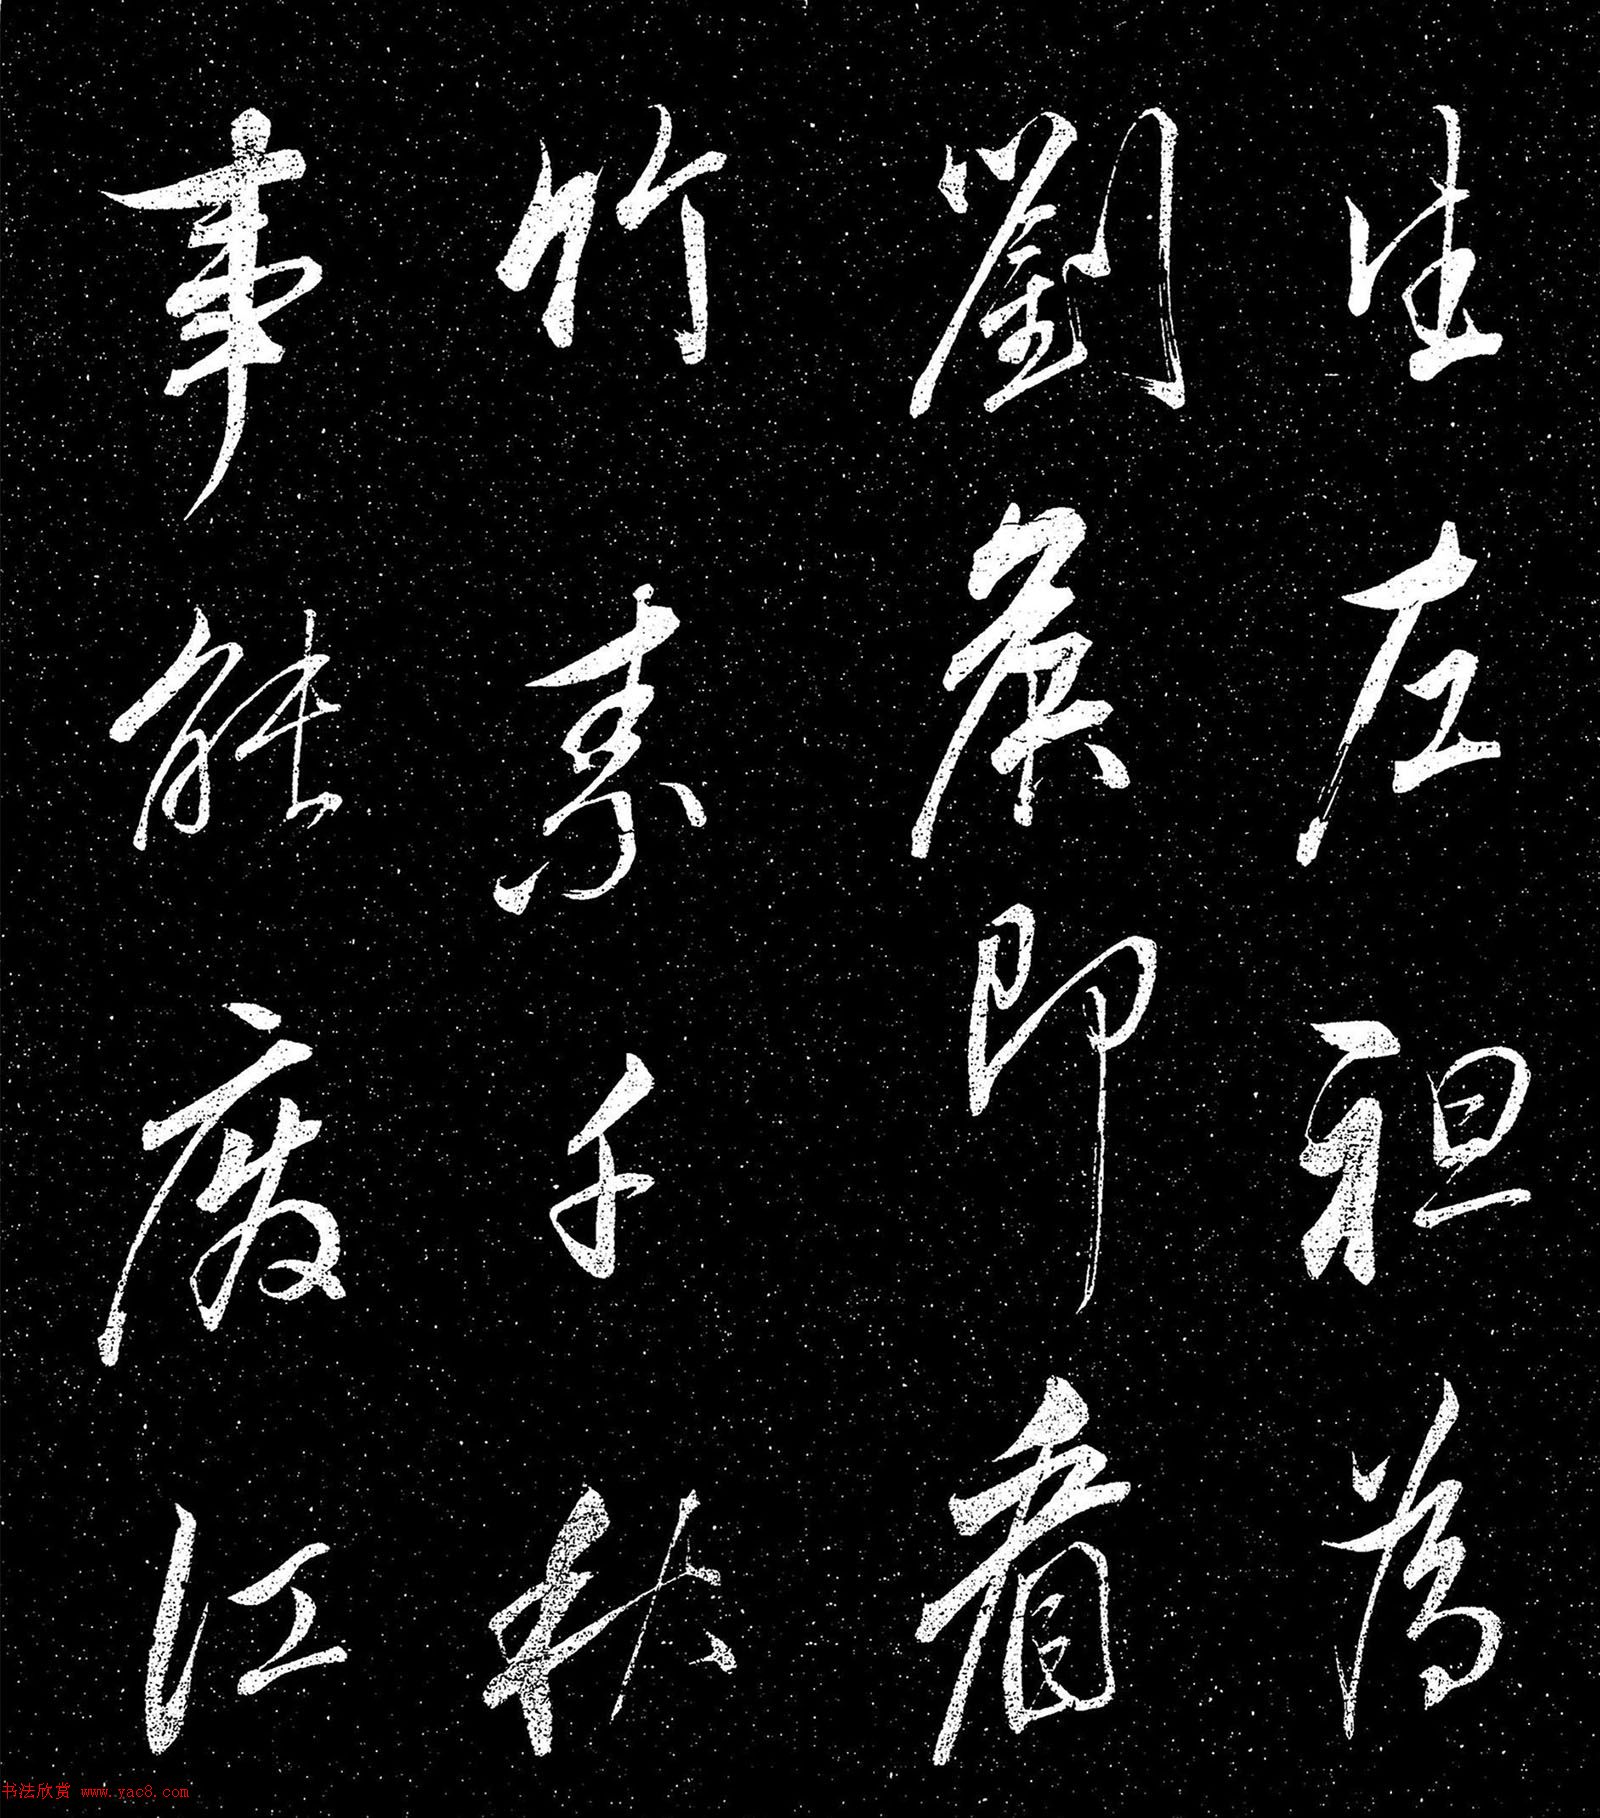 生左袒為
劉侯即看
竹素千秋
事能廢江
书法欣赏 www.yac8.com